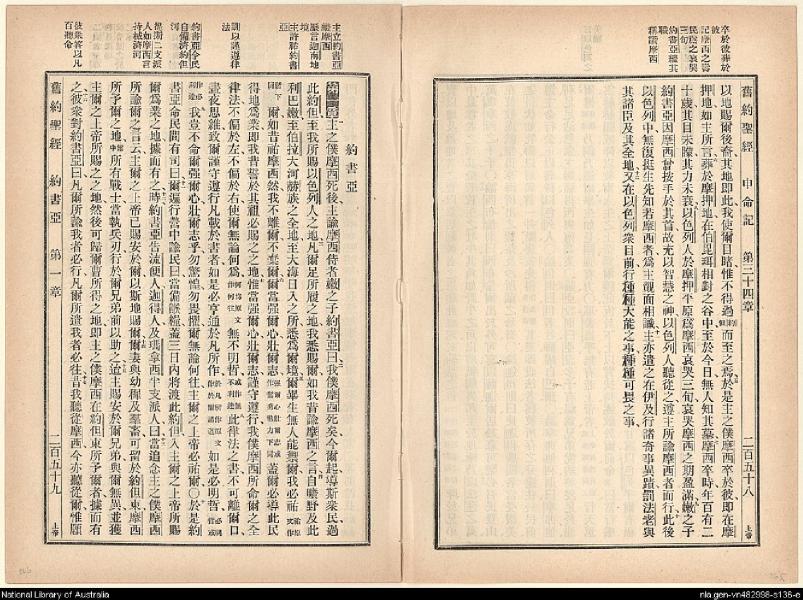 卒於彼葬於
彼
記摩西之壽
民爲之哀哭
三旬
約書亞續其
職
稱讚摩西
舊約聖經 申命記 第三十四章 二百五十八 上帝
以地賜爾後裔其地即此我使爾目睹惟不得過而至之焉於是主之僕摩西卒於彼即在摩
押地如主所言葬於摩押地在伯毘珥相對之谷中至於今日無人知其墓摩西卒時年百有二
十歲其目未矇其力未衰以色列人於摩押平原爲摩西哀哭三旬哀哭摩西之期盈滿嫩之子
約書亞因摩西曾按手於其首故充以智慧之神以色列人聽從之遵主所諭摩西者而行此後
以色列中無復挺生先知若摩西者爲主覿面相識主亦遣之在伊及行諸奇事異蹟罰法老與
其諸臣及其全地又在以色列衆目前行種種大能之事種種可畏之事
主立約書亞
繼摩西
釐言迦南地
境
主許祐約書
亞
訓以謹遵律
法
約書亞令民
自備濟約但
河
提醒二支派
人如摩西言
持械濟河
彼衆答以凡
百聽命
約書亞
主之僕摩西死後主諭摩西侍者嫩之子約書亞曰我僕摩西死矣今爾起導斯衆民過
此約但至我所賜以色列人之地凡爾足所履之地我悉賜爾如我昔諭摩西之言自曠野及此
利巴嫩至伯拉大河赫族之全地至大海日入之所悉爲爾境爾畢生無人能禦爾我必祐
爾如昔祐摩西然我不離爾不棄爾爾當强爾心壯爾志蓋爾必導此民
得地爲業即我昔誓於其祖必賜之之地惟當强爾心壯爾志謹守遵行我僕摩西所命爾之全
律法不偏於左不偏於右使爾無論何爲無不明哲此律法之書不可離爾口
晝夜思維致爾謹守遵行凡載於書者如是必亨通於凡所作如是必明哲
我豈不命爾强爾心壯爾志乎勿驚惶勿畏懼爾無論何往主爾之上帝必祐爾〇於是約
書亞命民間有司曰爾遍行營中諭民曰當備餱糧蓋三日内將渡此約但入主爾之上帝所賜
爾爲業之地據而有之時約書亞告流便人迦得人及瑪拿西半支派人曰當追念主之僕摩西
所諭爾之言云主爾之上帝已賜安於爾以斯地賜爾爾妻與幼穉及羣畜可留於約但東摩西
所予爾之地所有戰士當執兵刃行於爾兄弟前以助之迨主賜安於爾兄弟與爾無異並獲
主爾之上帝所賜之之地然後可歸爾曹所得之地即主之僕摩西在約但東所予爾者據而有
之彼衆對約書亞曰凡爾所諭我者必行凡爾所遣我者必往昔我聽從摩西今亦聽從爾惟願
舊約聖經 約書亞 第一章 二百五十九 上帝
National Library of Australia
nla.gen-vn482998-s136-e